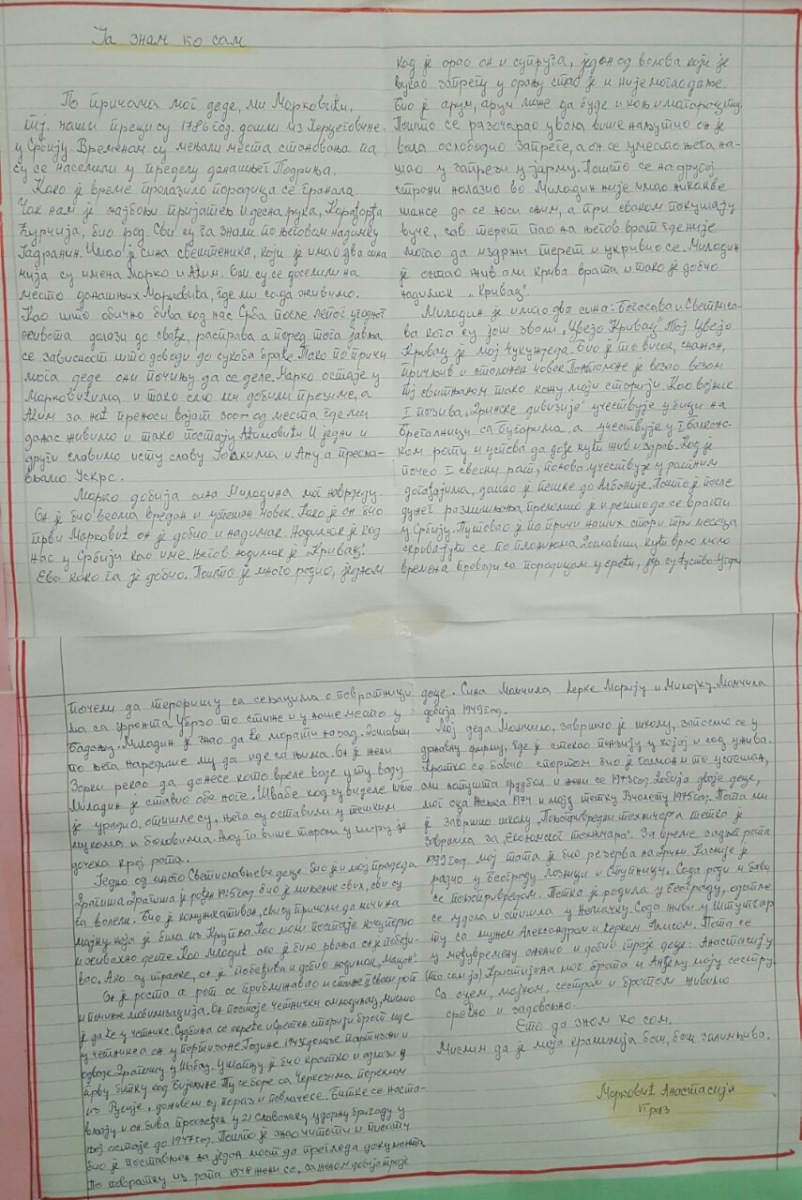 Ја знам ко сам
По причама мог деде, ми Марковићи.
тј. наши преци су 1786 год. дошли из Херцеговине
у Србију. Временом су мењали места становања па
су се населили у пределу данашњег Подриња.
Како је време пролазило породица се гранала.
Чак нам је најбољи пријатељ и десна рука, Карађорђа
Ћурчија, био род. Сви су га знали по његовом надимку
Јадранин. Имао је сина свештеника, који је имао два сина
чија су имена Марко и Аћим. Они су се доселили на
место данашњих Марковића, где ми сада живимо.
Као што обично бива код нас Срба после лепог угодног
живота долази до свађе, расправа а поред тога јавља
се зависност што доводи до сукоба браће. Тако по причи
мога деде они почињу да се деле. Марко остаје у
Марковићима и тако смо ми добили презиме, а
Аћим за ноћ преноси вајат 300м од места где ми
данас живимо и тако постају Аћимовићи. И једни и
други славимо исту славу Јоакима и Ану а пресла-
вљамо Ускрс.
Марко добија сина Милодина мог наврдеду.
Он је био веома вредан и успешан човек. Како је он био
први Марковић он је добио и надимак. Надимак је код
нас у Србији као име. Његов надимак је "Кривац".
Ево како га је добио. Пошто је много радио, једном
код је орао он и супруга, један од волова који је
вукао запрегу у орању стао је и није могао даље.
Био је арум, арум може да буде и коњ и магарац итд.
Пошто се разочарао у вола више наљутио он је
вола ослободио запреге, а он се уместо њега на-
шао у запрези у јарму. Пошто се на другој
страни налазио во Милодин није имао никакве
шансе да се носи с њим, а при сваком покушају
вуче, сав терет пао на његов врат где није
могао да издржи терет и укривио се. Милодин
је остао жив али крива врата и тако је добио
надимак "Кривац".
Милодин је имао два сина: Богосава и Светисла-
ва кога су још звали "Цвејо Кривац". Тај Цвејо
Кривац је мој чукундеда. Био је то висок, снажан,
причљив и сталожен човек. Пантолоне је везао везом
тј свитњаком тако кажу моји старији. Као војник
I позива "Дринске дивизије" учествује у бици на
Брегалници са Бугарима а учествује у I балканс-
ком рату и успева да дође кући жив и здрав. Кад је
почео I светски рат, поново учествује у ратним
догађајима, дошао је пешке до Албаније. Пошто је после
дужег размишљања преломио је и решио да се врати
у Србију. Путовао је по причи наших стари три месеца
скривајући се по планинама. Дошавши кући врло мало
времена проводи са породицом у срећи, јер су Аустро-Угари
почели да тероришу са сељацима с повратници
ма са фронта. Убрзо то стиже и у наше место у
Бадању. Милодин је знао да ће морати назад. Дошавши
по њега наредише му да иде са њима. Он је жени
Зорки рекао да донесе кото вреле воде и у ту воду
Милодин је ставио обе ноге. Швабе кад су видели шта
је урадио, отишли су, њега су оставили у тешким
мукама и боловима. Мој га више таромо у миру је
дочека крај рата.
Једно од много Светиславњеве деце био је и мој прадеда
Драгиша. Драгиша је рођен 1925 год. био је миљеник свих, сви су
га волели. Био је комуникативан, сви су причали да личи на
мајку која је била из Крупња. Као мали постаје конкурентно
и живахно дете. Као младић ако је било рвања он је побеђи-
вао. Ако су трапке, он је побеђивао и добио надимак "Мацан".
Он је растао а рат се приближавао и стиже II светски рат
и почиње мобилизација. Он постаје четнички омладинац, мислио
је да ће у четнике. Судбина се окреће и сретен старији брат иде
у четнике а он у партизане. Године 1943 долазе партизани и
одводе Драгишу у Шабац. У Шапцу је био кратко и одлази у
прву битку код Бијељине. Ту се боре са Черкезима пореклом
из Русије, доживели су пораз и повлачење. Битке се наста-
вљају и он бива прослеђен у 21 Славонску ударну бригаду у
којој остаје до 1947 год. Пошто је знао читати и писати
био је постављен за један мост да прегледа документа.
По повратку из рата 1948 жени се, са женом добија троје
деце. Сина Момчила ћерке Марију и Милојку. Момчила
добија 1949 год.
Мој деда Момчило, завршио је школу, запослио се у
државну фирму, где је стекао пензију у којој и сад ужива.
Кратко се бавио спортом био је голман и то успешан,
али напушта фудбал и жени се 1973 год. Добија двоје деце,
мог оца Жељка 1974 и моју тетку Виолету 1975 год. Тата ми
је завршио школу "Пољопривредни техничар" а тетка је
завршила за "Економског техничара". За време задњег рата
1992 год мој тата је био резерва на Дрини. Касније је
радио у Београду Лозници и Ступници. Сада ради и бави
се пољопривредом. Тетка је родила у Београду, одатле
се удала и отишла у Немачку. Сада живи у Штутгар
ту са мужем Александром и ћерком Алисом. Тата се
у међувремену оженио и добио троје деце: Анастасију
(то сам ја) Кристијана мог брата и Анђелу моју сестру.
Са оцем, мајком, сестром и братом живимо
срећно и задовољно.
Ето да знам ко сам.
Мислим да је моја фамилија баш, баш занимљива.
Марковић Анастасија
VI раз